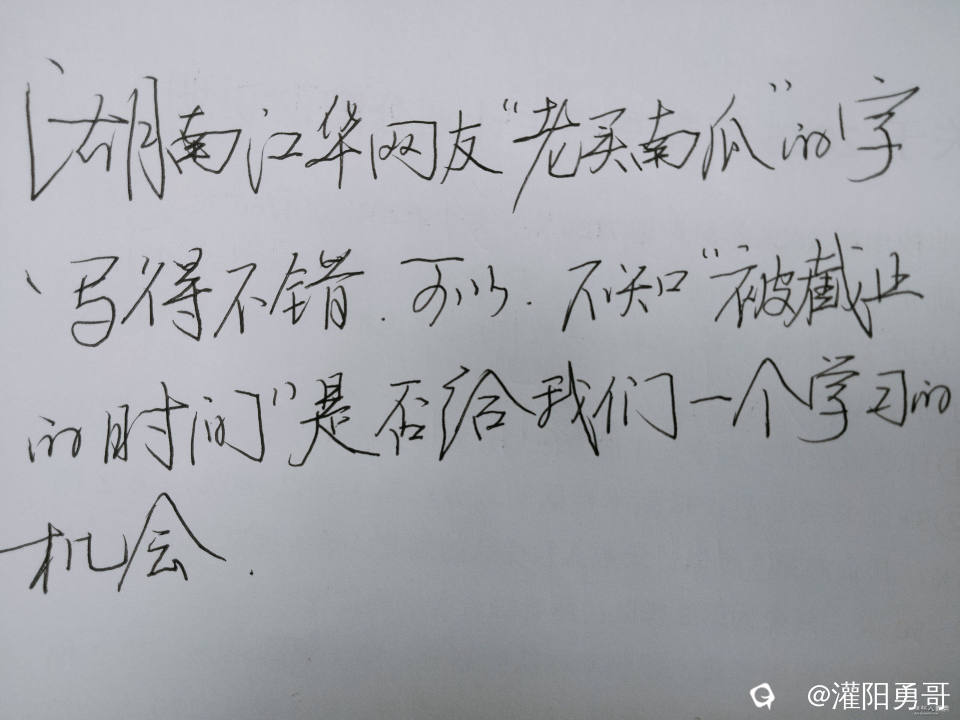 湖南江华网友“老买南瓜”的字
写得不错.可以.不知“被截止
的时间”是否给我们一个学习的
机会.
@灌阳勇哥